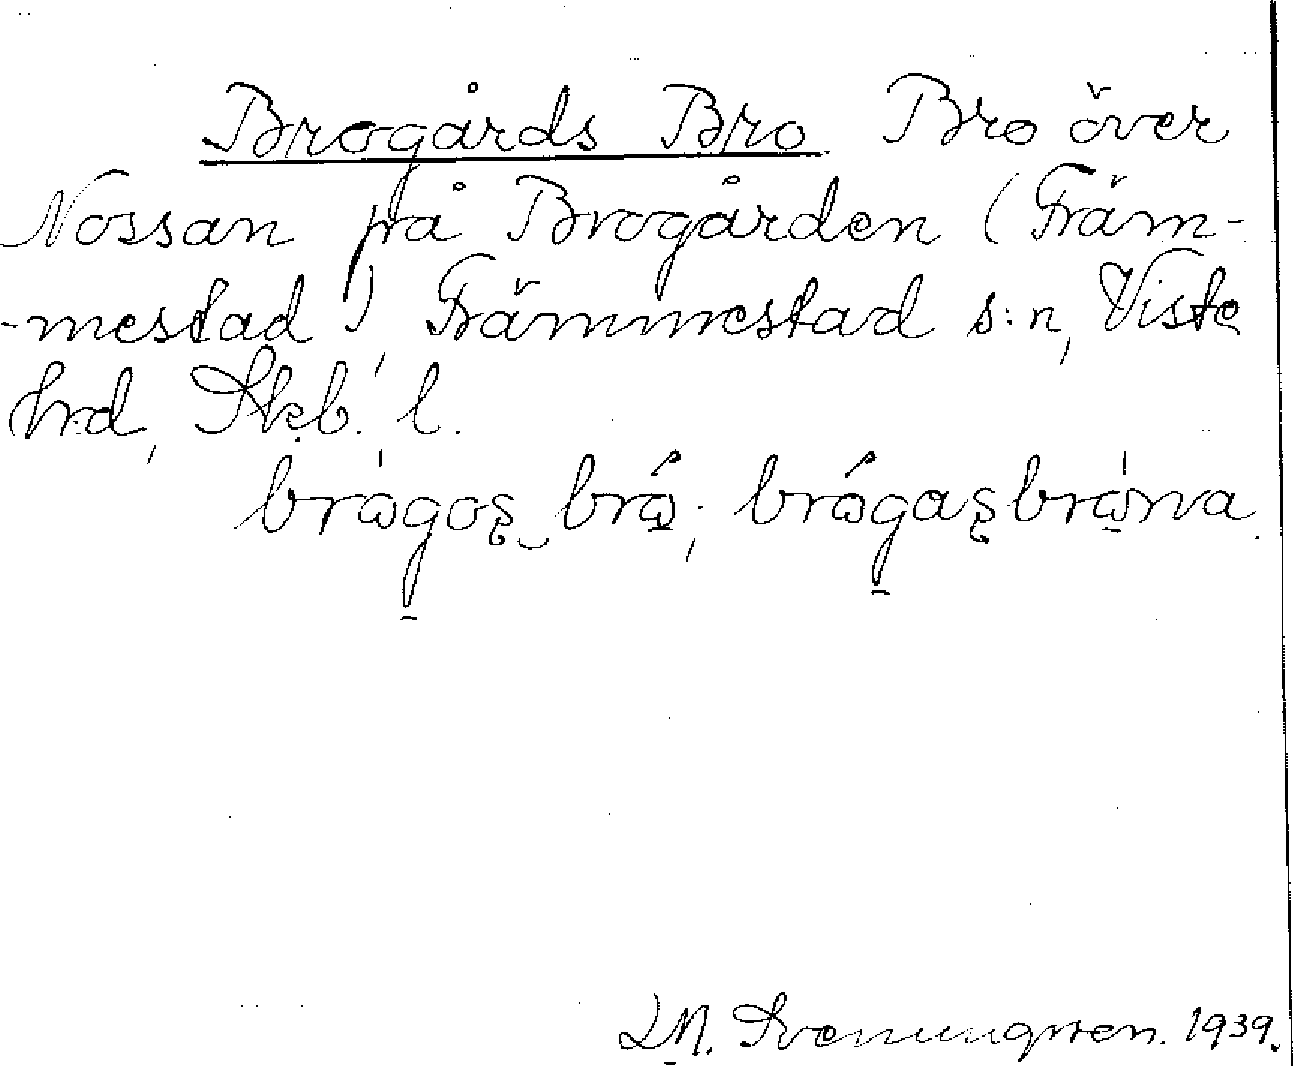 Brogårds Bro Bro över
Nossan på Brogården (Främ-
-mestad), Främmestad s:n, Viste
hrd, Skb. l.
brógos bró; brógasbróna.
Svenungsson. 1939.